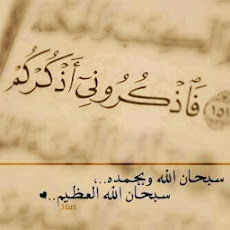 فَٱذْكُرُونِىٓ أَذْكُرْكُمْ ١٥١
سبحان الله وبحمده..،
سبحان الله العظيم..♥